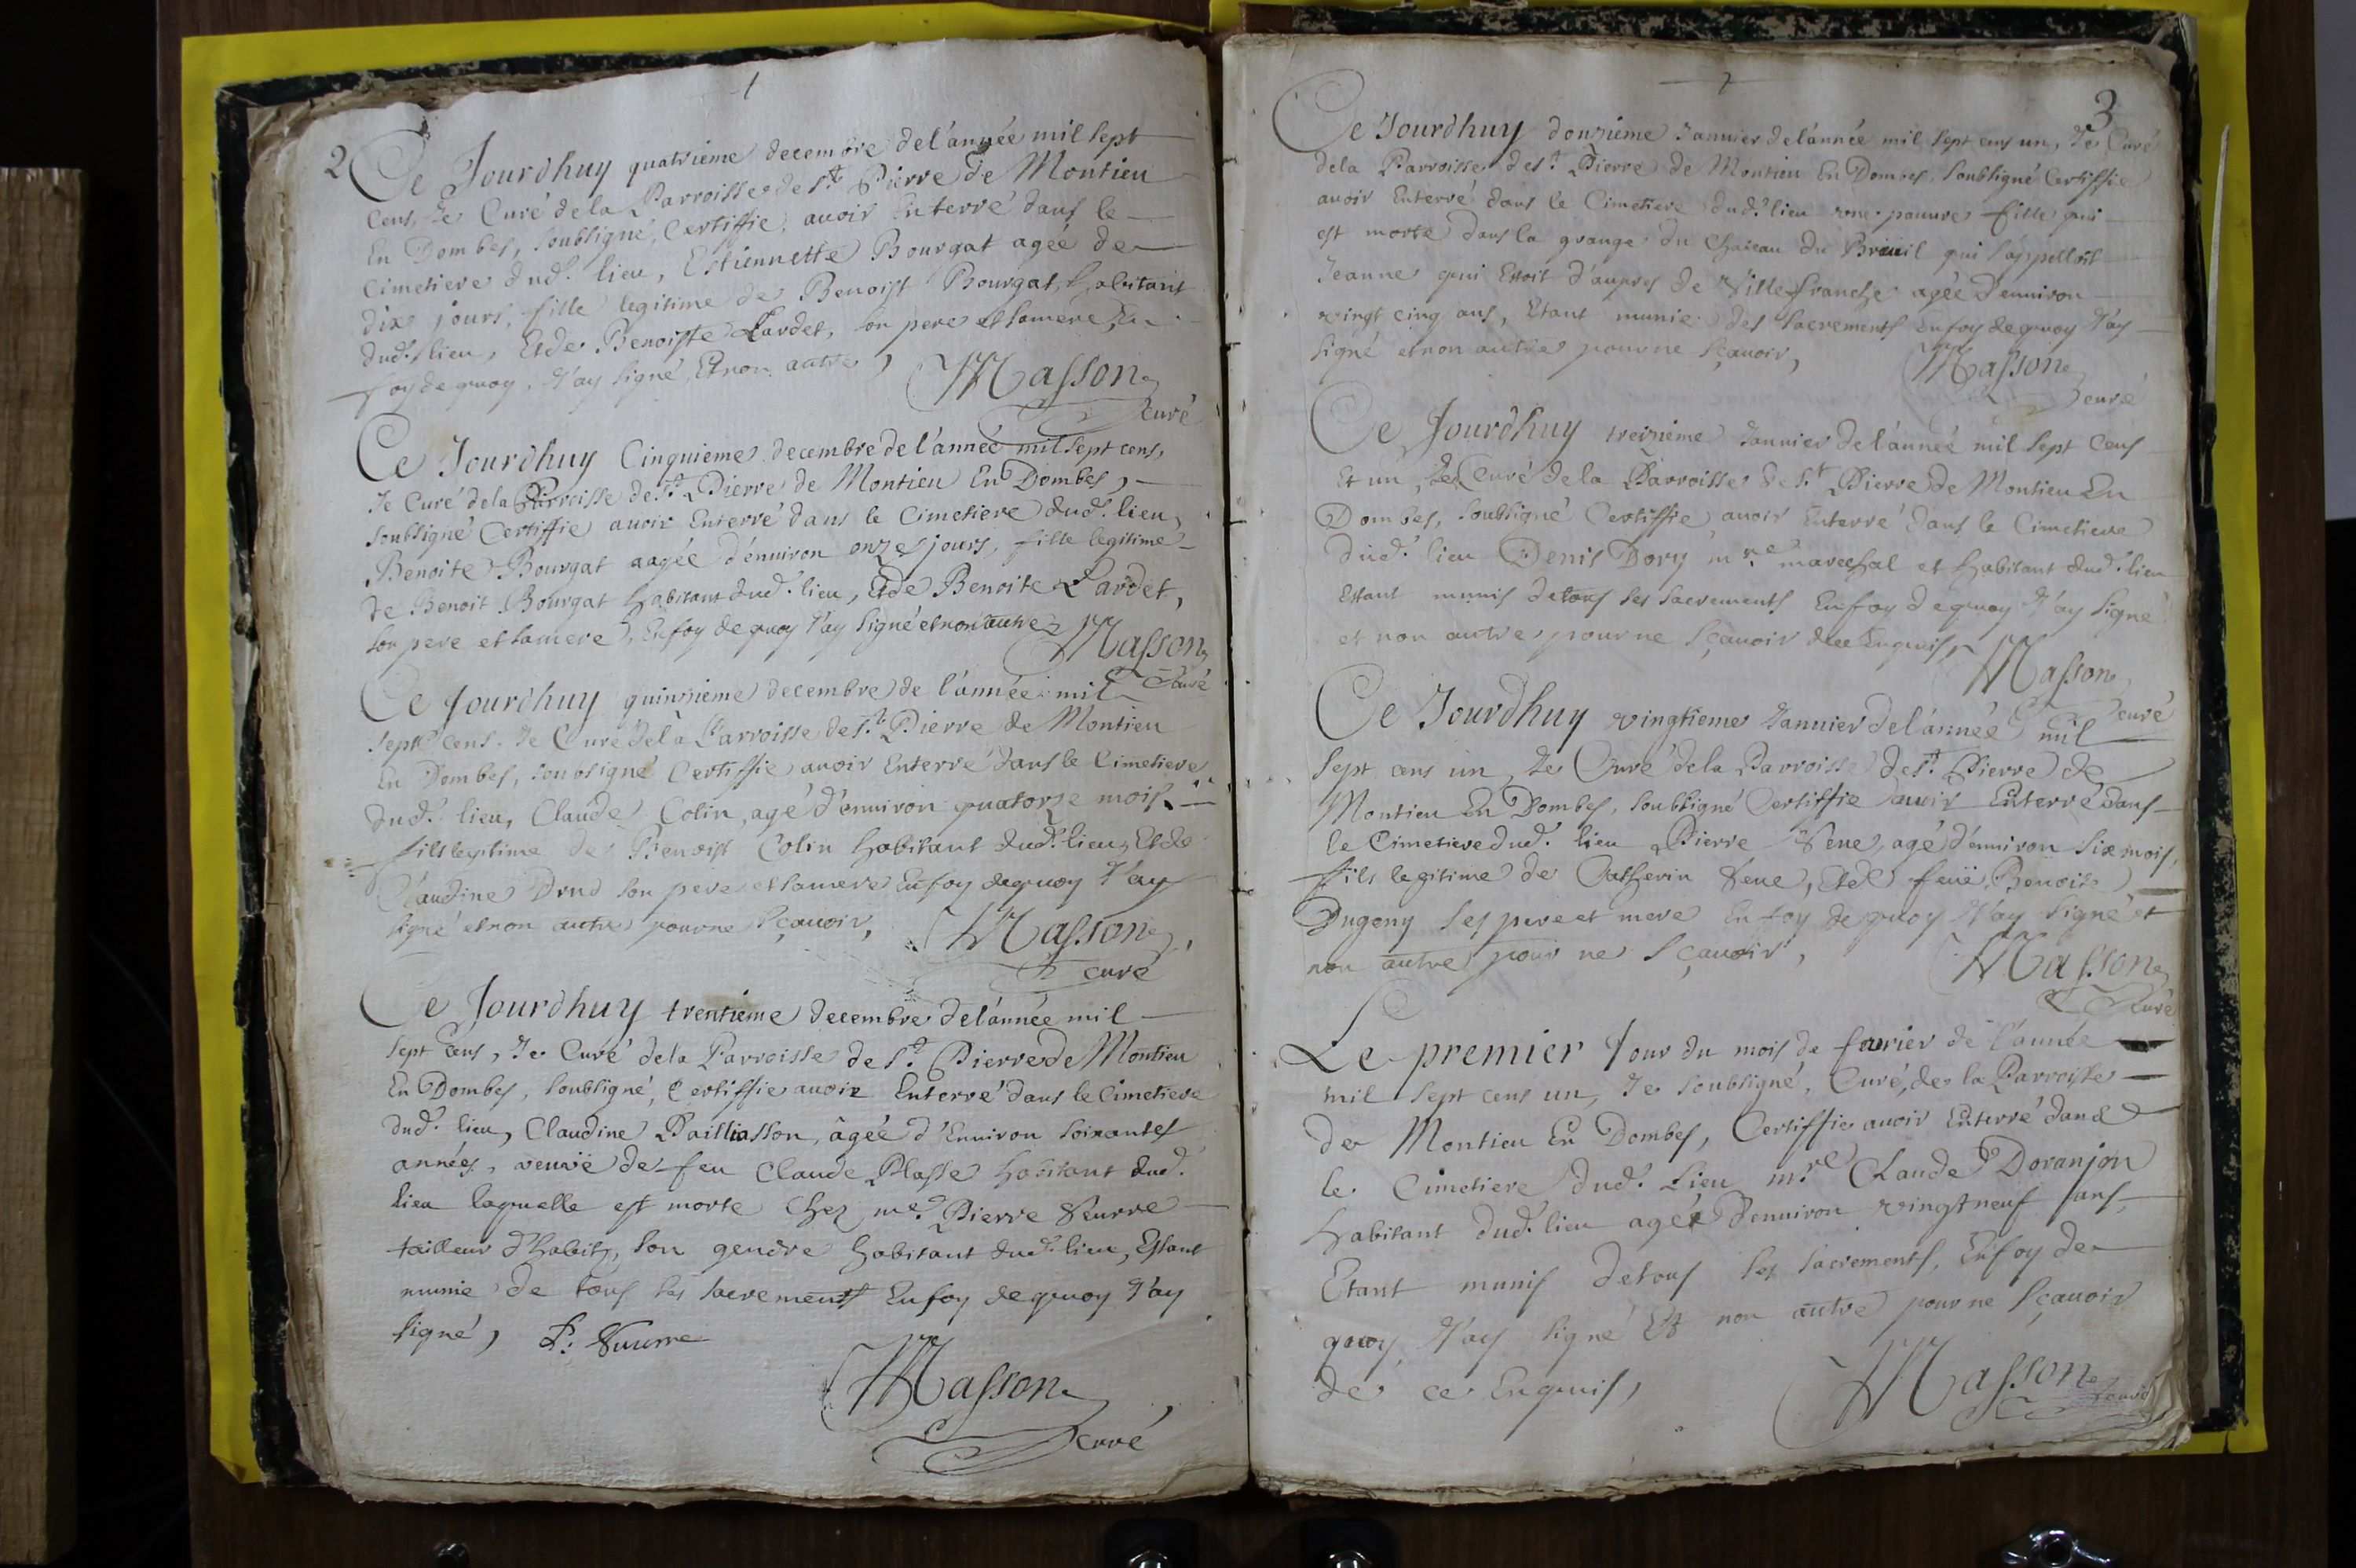 1
2
Ce Jourdhuy quatrieme decembre de l'année mil sept
cens, Je Curé de la Parroisse de St. Pierre de Montieu
En Dombes, soubsigné, Certiffie, auoir Enterré dans le
Cimetiere dud. lieu, Estiennette Bourgat agée de
dix jours, fille legitime de Benoist Bourgat, habitant
dud. lieu, Et de Benoiste Lardet, son pere et sa mere, En
foy de quoy, J'ay signé, Et non autre,
Masson
curé
Ce Jourdhuy Cinquieme decembre de l'année mil sept cens,
Je Curé de la Parroisse de St. Pierre de Montieu En Dombes,
soubsigné Certiffie auoir Enterré dans le Cimetiere dud. lieu,
Benoite Bourgat aagée d'enuiron onze jours, fille legitime
de Benoit Bourgat habitant dud. lieu, Et de Benoite Lardet,
son pere et sa mere, En foy de quoy J'ay signé et non autre
Masson
Curé
Ce Jourdhuy quinzieme decembre de l'année mil
sept cens. Je Curé de la Parroisse de St. Pierre de Montieu
En Dombes, soubsigné Certiffie auoir Enterré dans le Cimetiere
dud. lieu, Claude Colin, agé d'enuiron quatorze mois
fils legitime de Benoist Colin habitant dud. lieu, Et de
Claudine Drud son pere et sa mere En foy de quoy J'ay
signé et non autre pour ne sçauoir,
Masson
curé
Ce Jourdhuy trentieme decembre de l'année mil
sept cens, Je Curé de la Parroisse de St. Pierre de Montieu
En Dombes, soubsigné, Certiffie auoir Enterré dans le Cimetiere
dud. lieu, Claudine Pailliasson, âgée d'Enuiron soixantes
années, veuue de feu Claude Plasse habitant dud.
lieu laquelle est morte Chez me. Pierre Veurre
tailleur d'habitz, son gendre habitant dud. lieu, Estant
munie de tous ses sacrements En foy de quoy J'ay
signé, P: Vuurre
Masson
curé
2
3
Ce Jourdhuy donzieme Januier de l'année mil sept cens un, Je Curé
de la Parroisse de St. Pierre de Montieu En Dombes, soubsigné Certiffie
auoir Enterré dans le Cimetiere dud. lieu vne pauure fille qui
est morte dans la grange du Chateau du Breuil qui s'appelloit
Jeanne qui Etoit d'aupres de Villefranche agée d'enuiron
vingt cinq ans, Etant munie des sacrements En foy de quoy J'ay
signé et non autre pour ne sçauoir,
Masson
curé
Ce Jourdhuy treizieme Januier de l'année mil sept Cens
Et un, Je Curé de la Parroisse de St. Pierre de Montieu En
Dombes, soubsigné Certiffie auoir Enterré dans le Cimetiere
dud. lieu Denis Dory mre. marechal et habitant dud. lieu
Estant munis de tous ses sacrements En foy de quoy J'ay signé
et non autre pour ne sçauoir de ce Enquis,
Masson
curé
Ce Jourdhuy vingtieme Januier de l'année mil
sept cens un, Je Curé de la Parroisse de St. Pierre de
Montieu En Dombes, soubsigné Certiffie auoir Enterré dans
le Cimetiere dud. lieu Pierre Vene, agé d'enuiron six mois,
fils legitime de Catherin Vene, Et de feuë Benoite
Dugeny ses pere et mere En foy de quoy J'ay signé et
non autre pour ne sçauoir,
Masson
Curé
Le premier Jour du mois de feurier de l'année
mil sept cens un, Je soubsigné, Curé, de la Parroisse
de Montieu En Dombes, Certiffie auoir Enterré dans
le Cimetiere dud. Lieu mre. Claude Doranjon
habitant dud. lieu agé d'enuiron vingt neuf ans,
Etant munis de tous ses sacrements, En foy de
quoy, J'ay signé Et non autre pour ne sçauoir
de ce Enquis,
Masson
curé